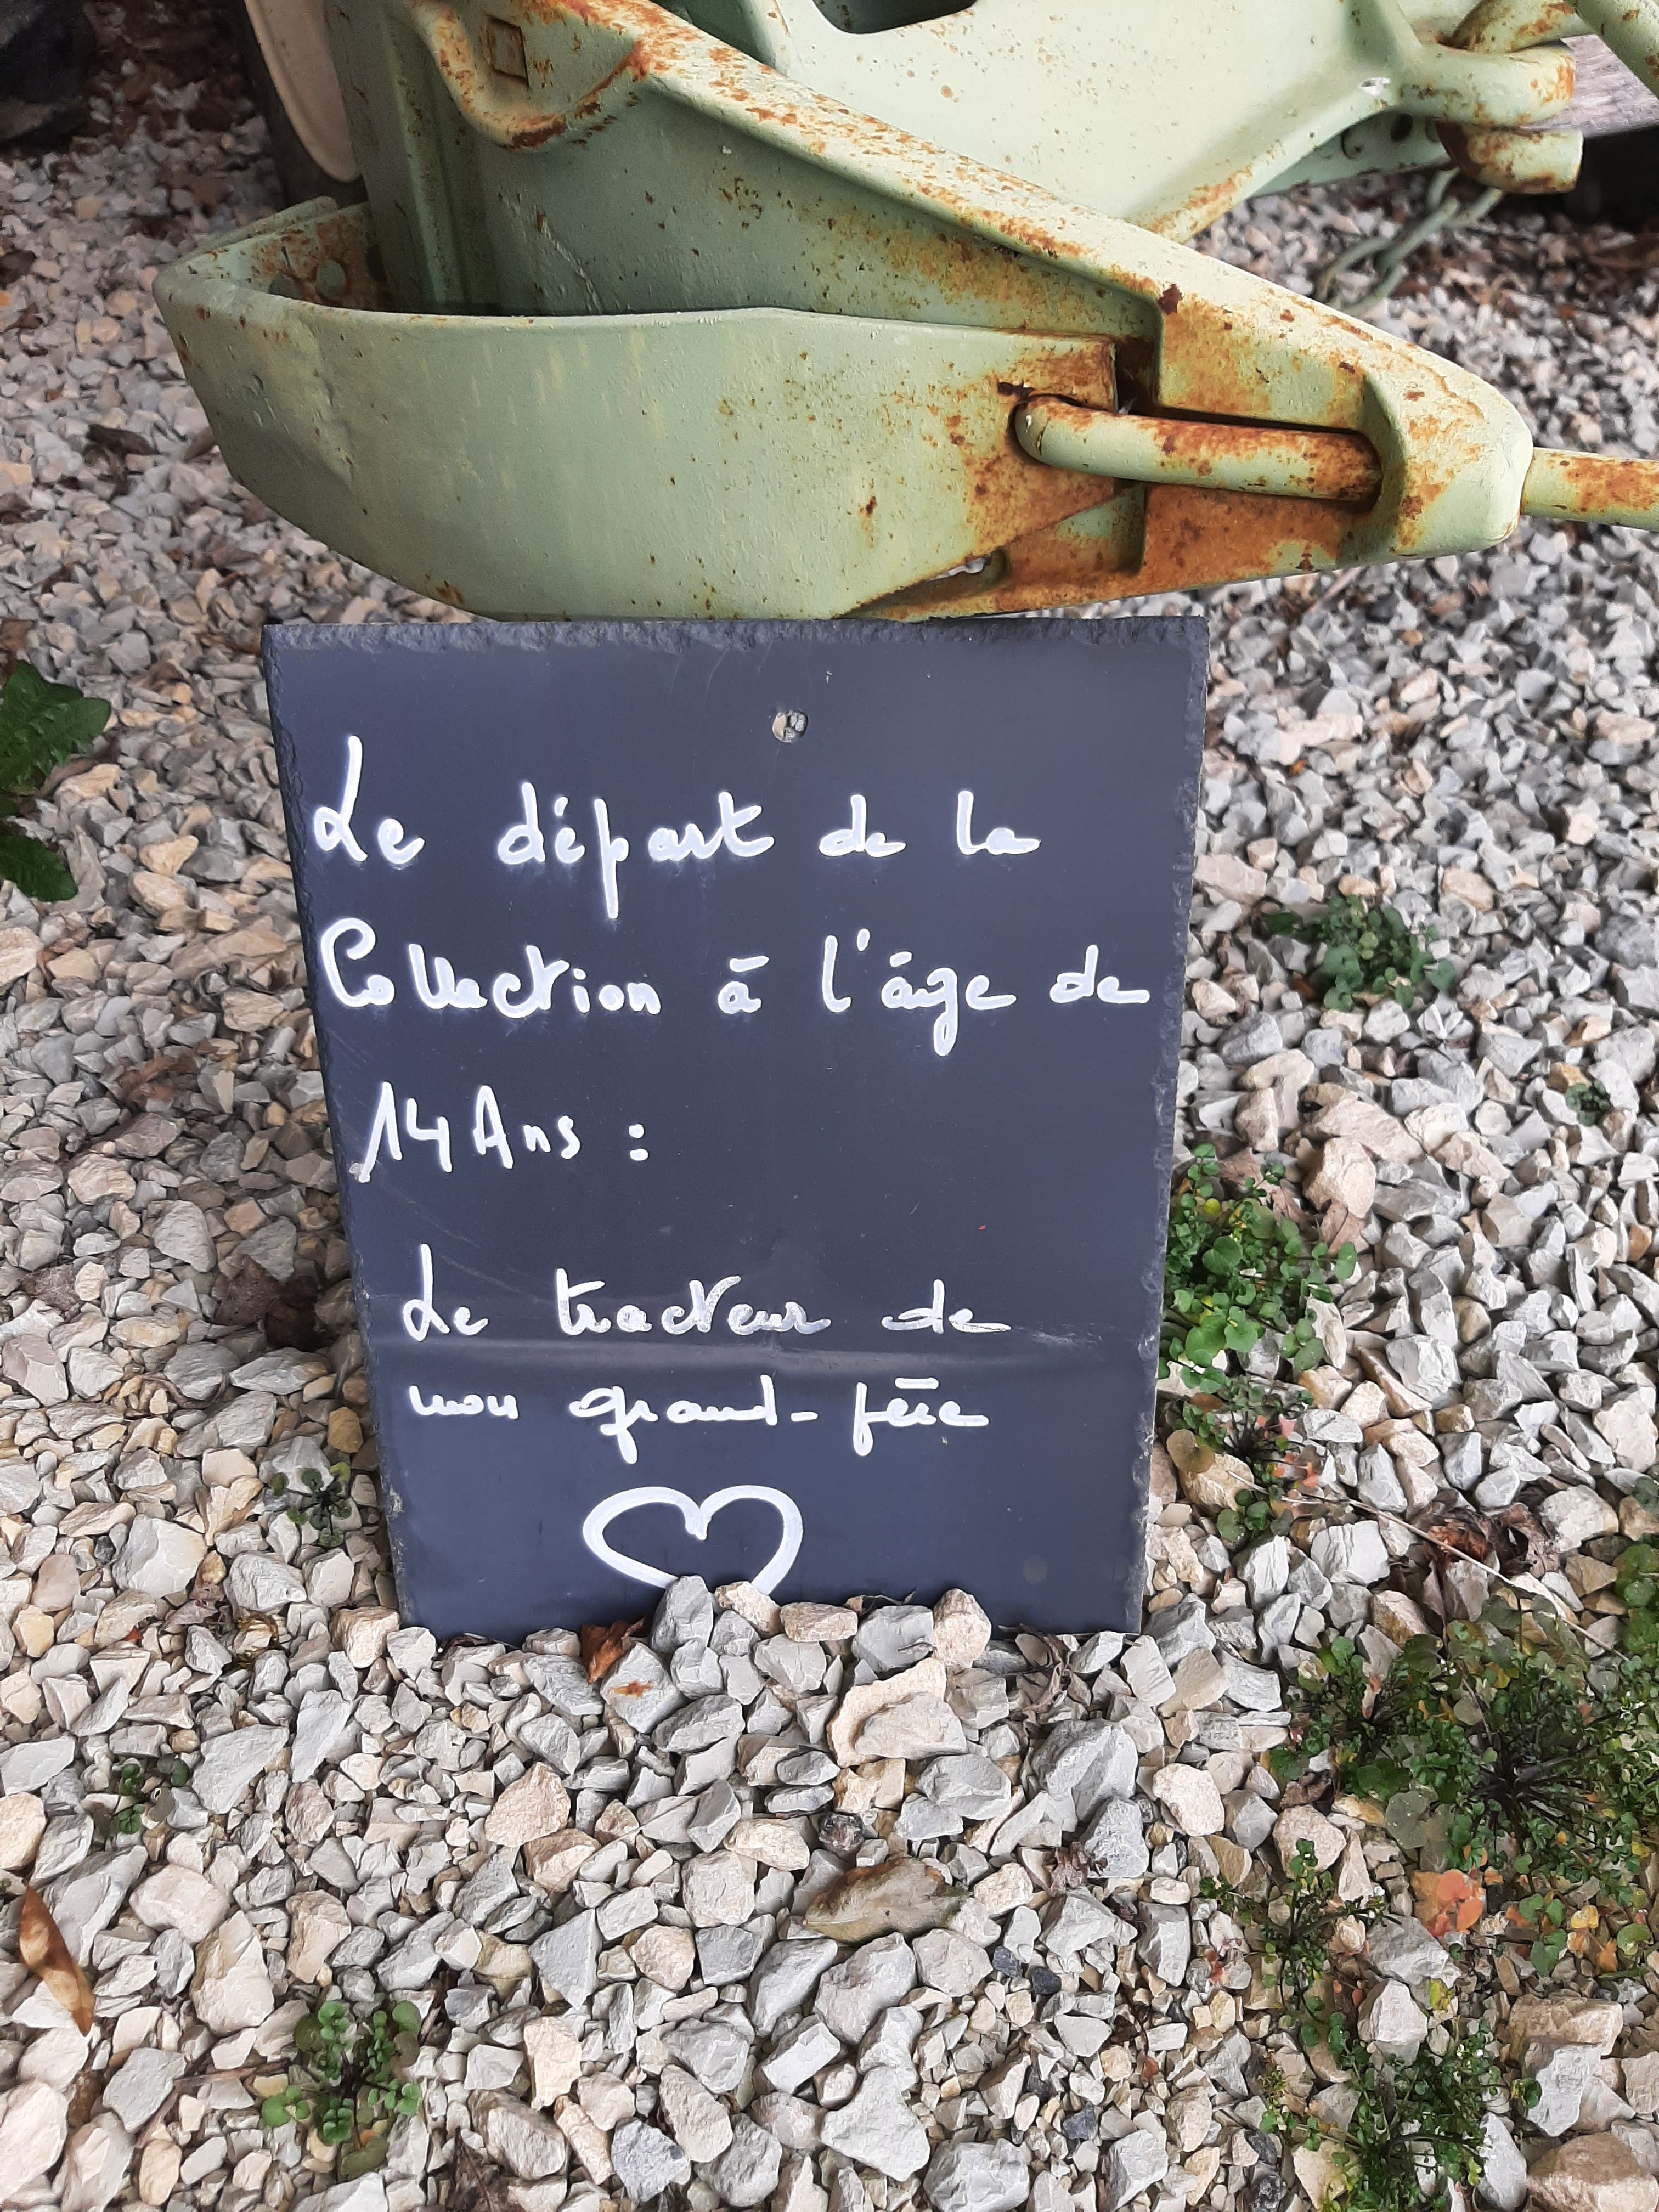 Le départ de la
Collection à l'âge de
14 Ans :
Le tracteur de
mon grand-père